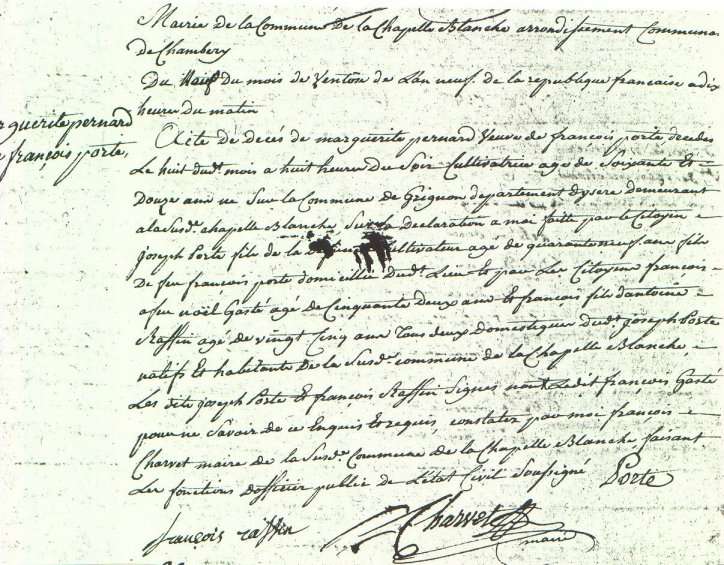 Mairie de la Commune De la Chapelle Blanche arrondissement Communal
De Chambery
Du neuf Du mois de Ventos de Lan neuf de la republique francaise a dix
heure Du matin
rguerite pernard
françois porte,
Acte De Décés de marguerite pernard Veuve de françois porte decedes
Le huit dud.t mois a huit heure Du Soir Cultivatrice age de Soixante Et
Douze ans né Sur la Commune de Grignon departement dysere demeurant
a la Susd.e chapelle Blanche, Sur la Declaration a moi faitte par le Citoyen
Joseph Porte fils de la Cultivateur age de quarante neuf ans fils
De feu francois porte domicillié Dud.t Lieu Et par Les Citoyens francois
a feu noël Gasté agé de Cinquante deux ans Et francois fils d'antoine
Raffin agé de vingt Cinq ans Tous deux Domestiques dud.t joseph Porte
natifs Et habitants De la Susd.e commune de la Chapelle Blanche
Les dits joseph Porte Et françois Raffin Signés non Ledit françois Gasté
pour ne Savoir de ce Enquis Et requis, constatez par moi françois
Charvet maire de la Susd.e Commune de la Chapelle Blanche faisant
Les fonctions dofficier public de L'état Civil Soussigné Porte
françois raffin Charvet
maire